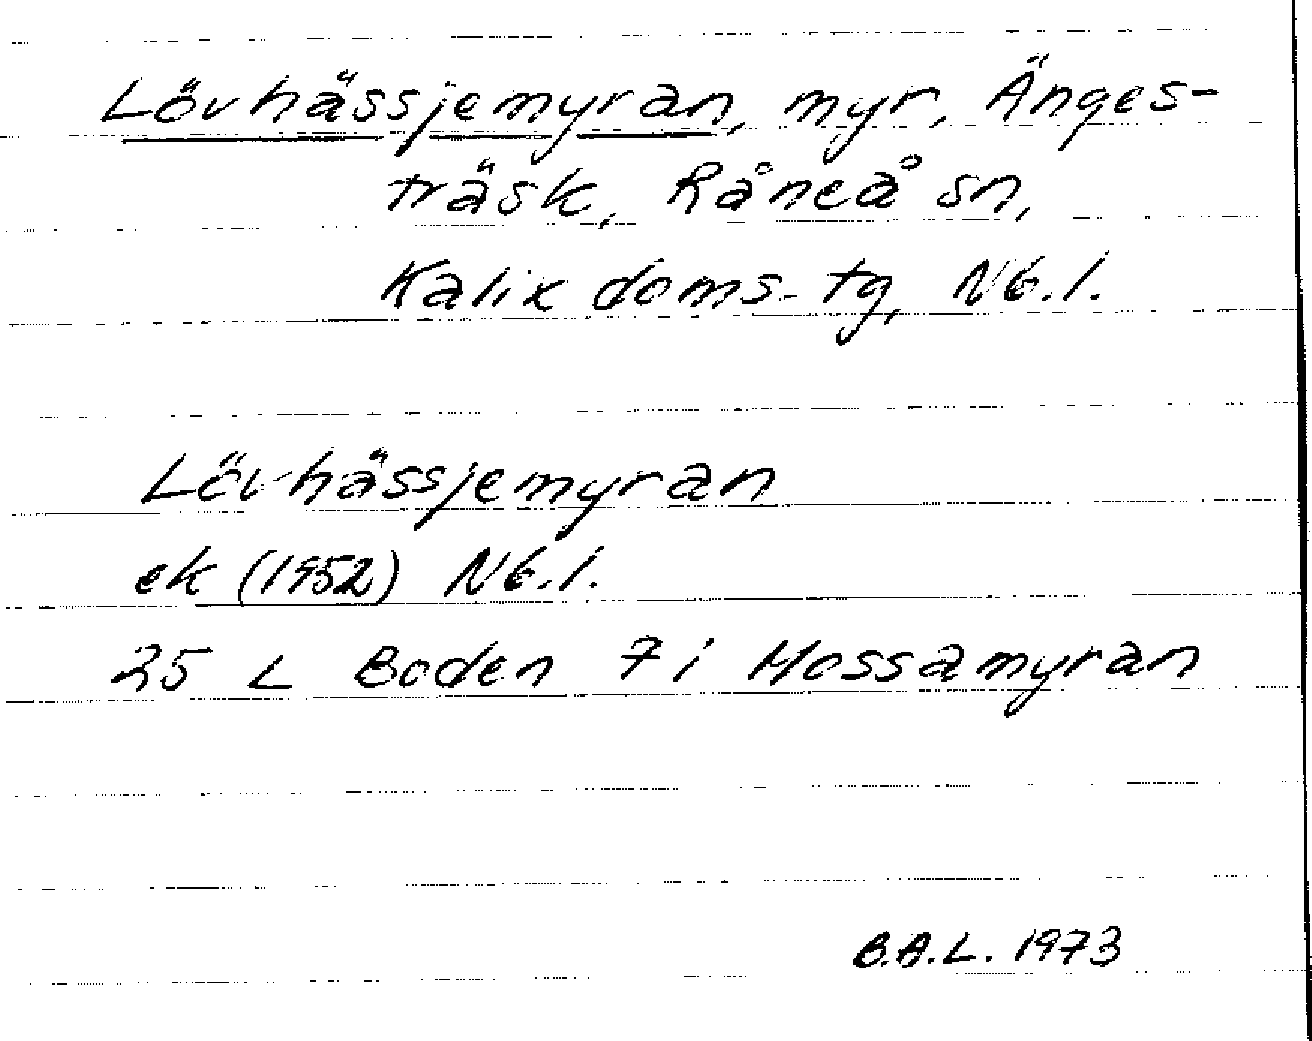 Lövhässjemyran, myr, Änges-
träsk, Råneå sn,
Kalix doms. tg, Nb. l.
Lövhässjemyran
ek (1952) Nb. l.
25 L Boden 7 i Mossamyran
B.A.L. 1973